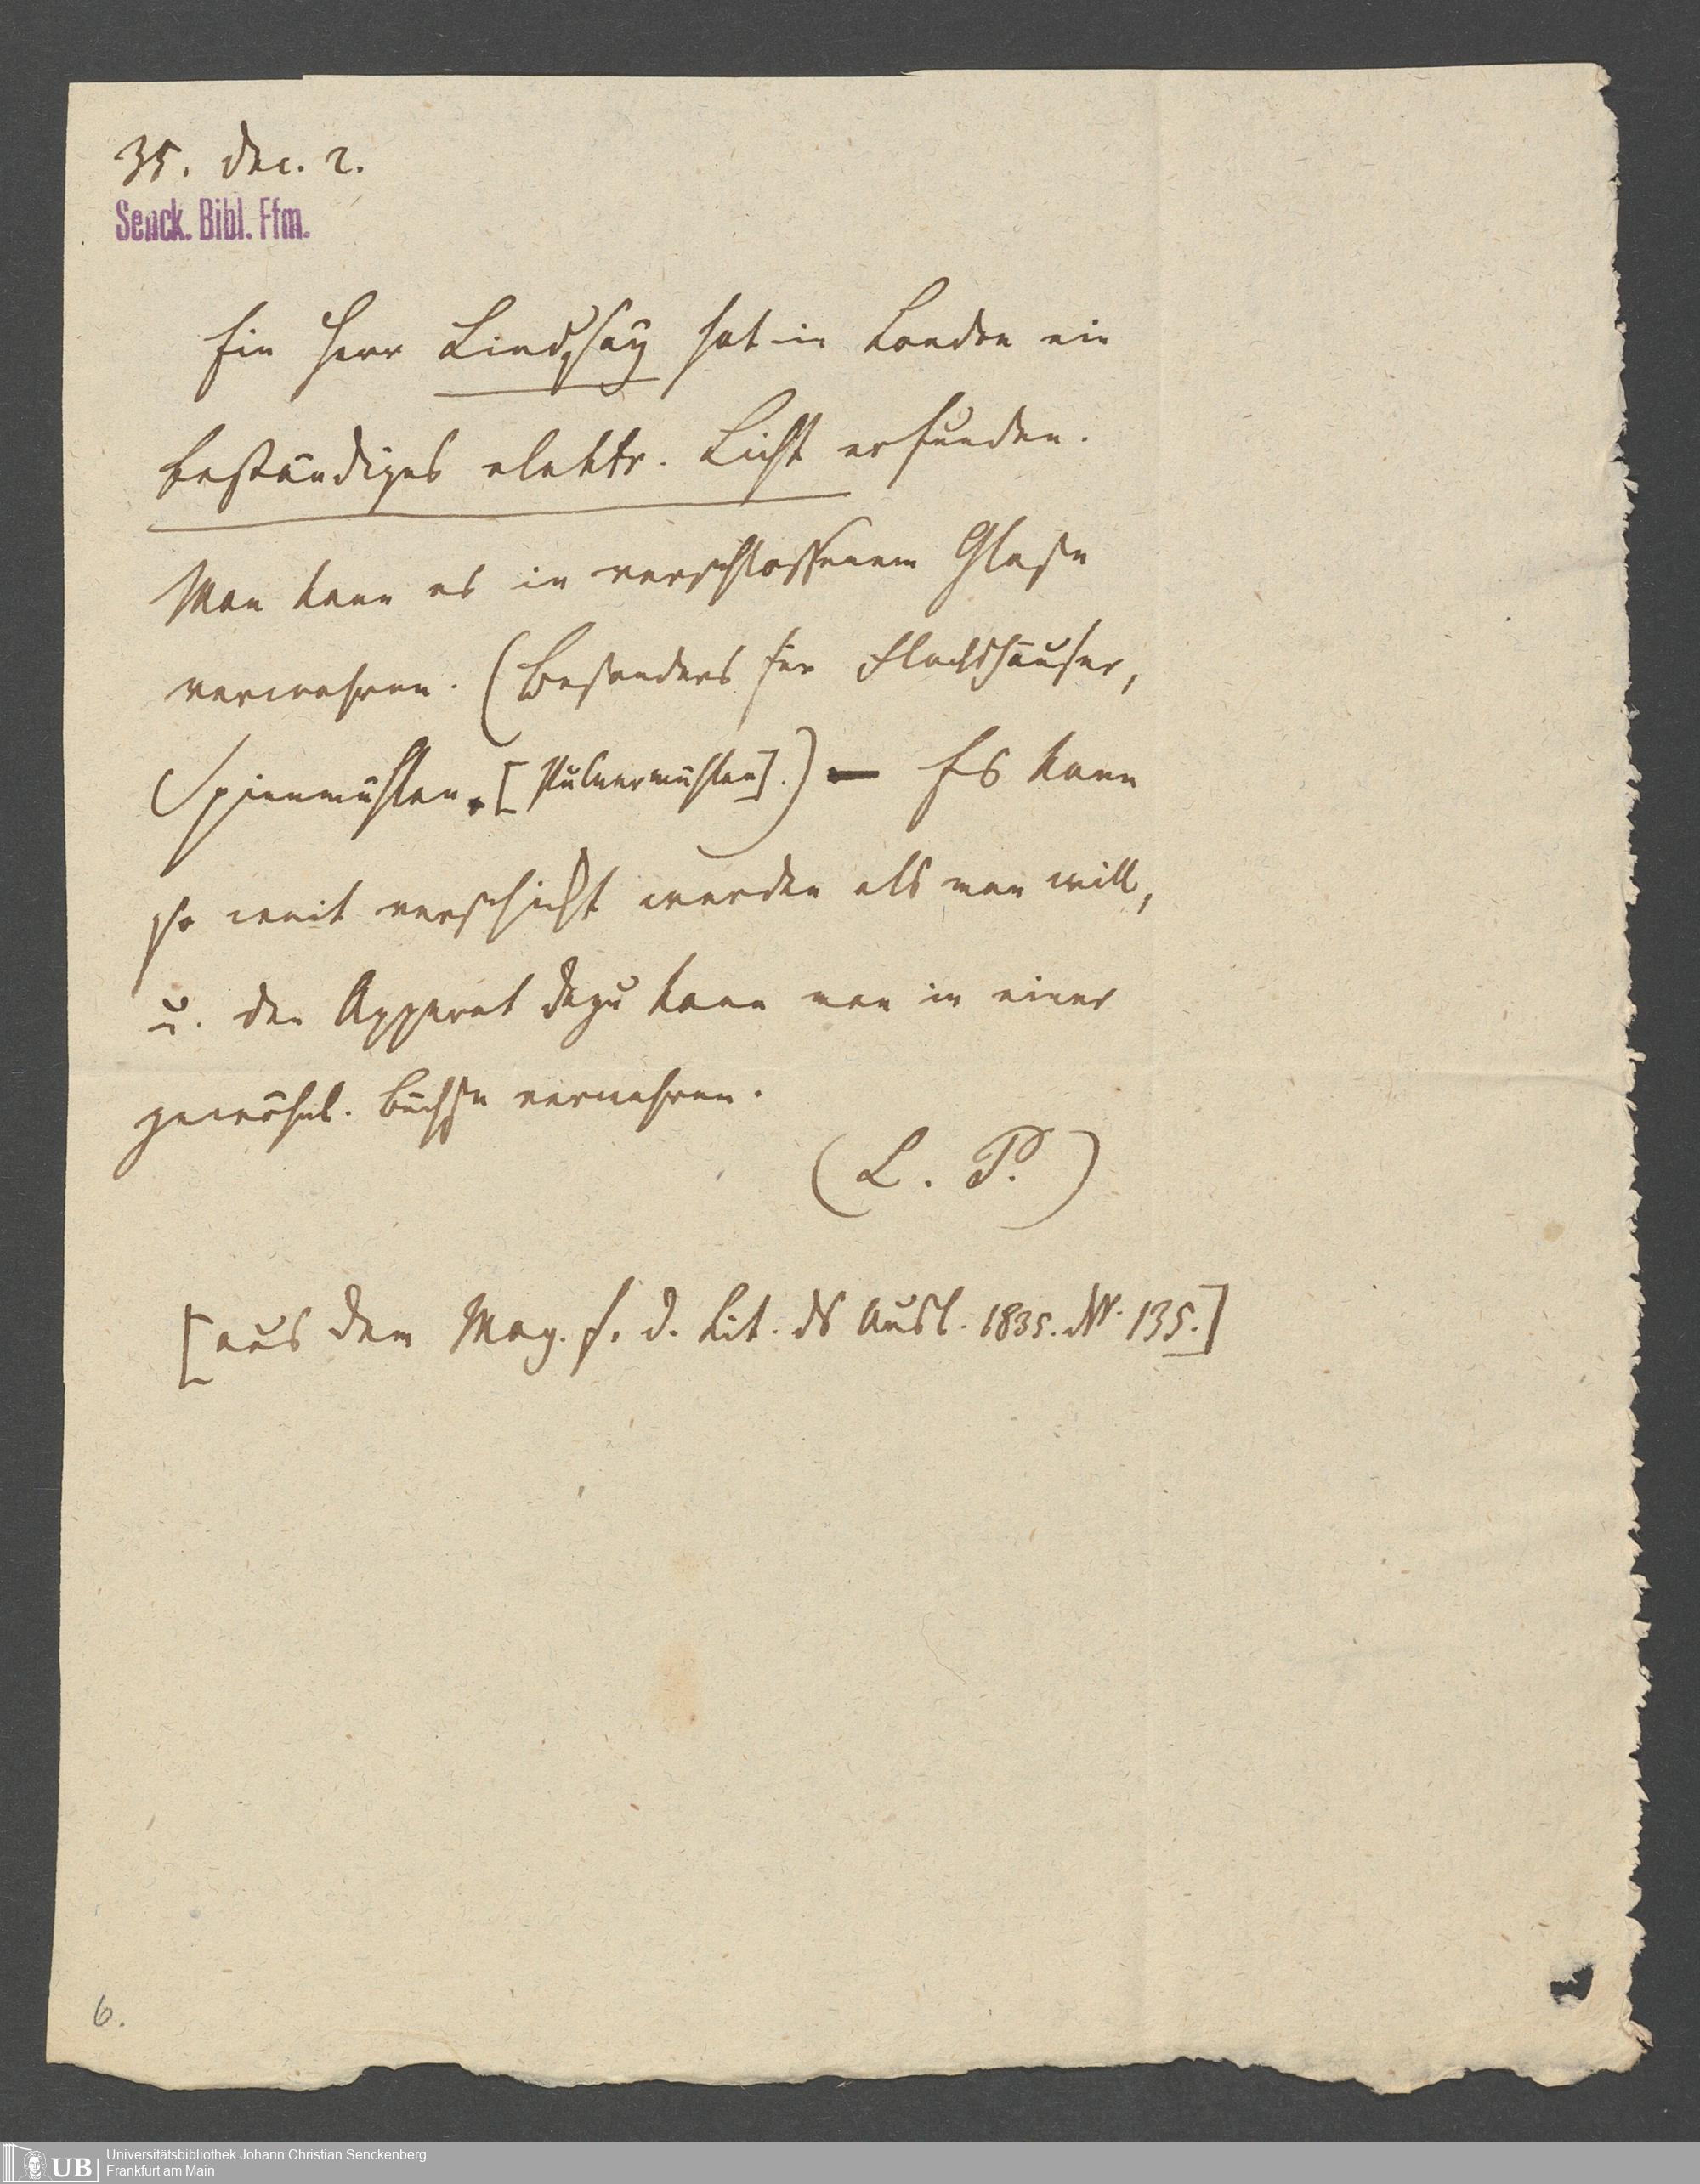 35. Dec. 2.
Senck. Bibl. Ffm.
Ein Herr Lindsay hat in London ein
beständiges elektr. Licht erfunden.
Man kann es in verschlossenem Glase
verwahren. (Besonders für Flachshäuser,
Spinnmühlen. [Pulvermühlen].) — Es kann
so weit verschickt werden als man will,
u. den Apparat dazu kann man in einer
gewöhnl. Büchse verwahren.
(L. P.)
[aus dem Mag. f. d. Lit. ds Ausl. 1835. Nr. 135.]
6.
UB Universitätsbibliothek Johann Christian Senckenberg
Frankfurt am Main